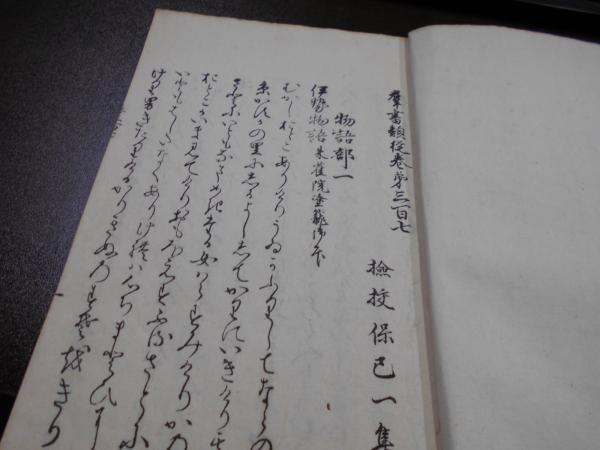 群書類従巻第三百七
撿挍保己一集
物語部一
伊勢物語朱雀院塗籠御本
むかしおとこありけりうゐかふりしてならの
京かすかの里にしるよししてかりにいきけりそ
のさとにいともなまめきたる女はらすみけりかの
おとこかいま見てけりおもほえすふるさとに
いともはしたなくありけれは心ちまとひに
けり男きたりけるかりきぬのすそをきり